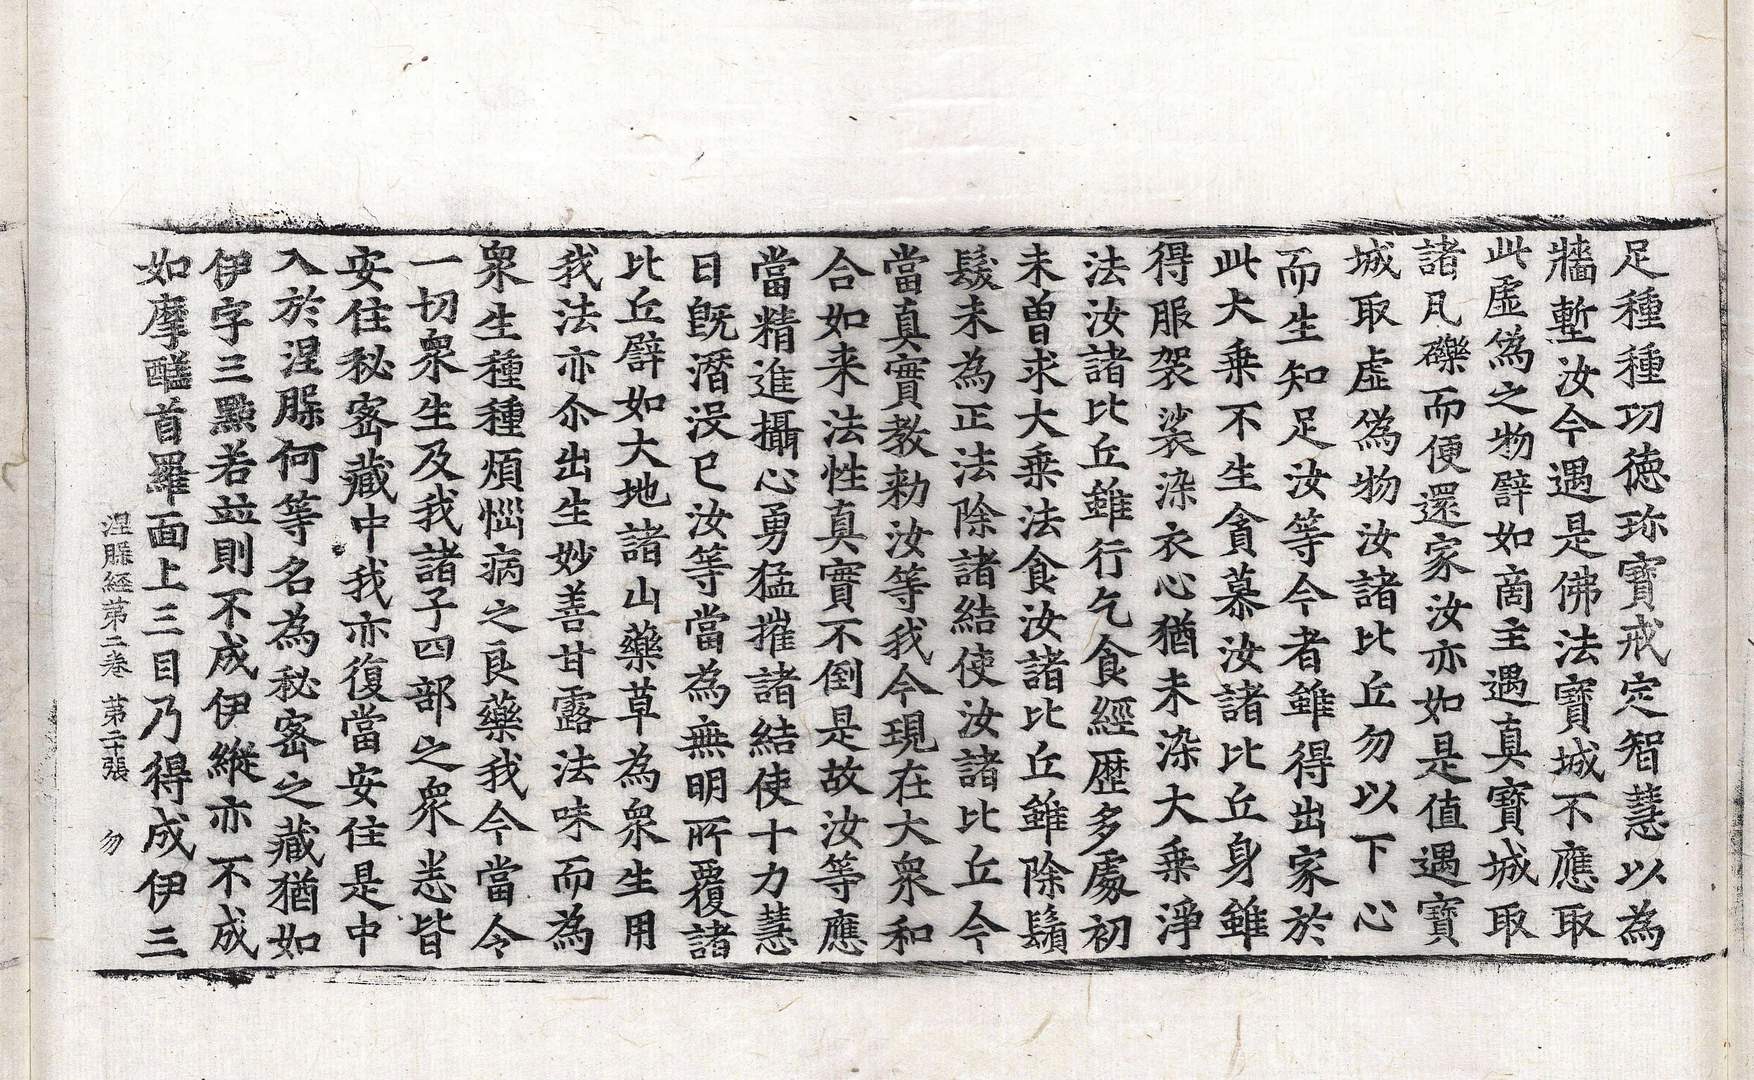 足種種功德珎寶戒定智慧以為
牆塹汝今遇是佛法寶城不應取
此虛偽之物譬如啇主遇真寶城取
諸凡礫而便還家汝亦如是值遇寶
城取虛偽物汝諸比丘勿以下心
而生知足汝等今者雖得出家於
此大乗不生貪慕汝諸比丘身雖
得服袈裟染衣心猶未染大乗淨
法汝諸比丘雖行乞食經歷多處初
未曽求大乗法食汝諸比丘雖除鬚
髮未為正法除諸結使汝諸比丘今
當真實教勑汝等我今現在大衆和
合如来法性真實不倒是故汝等應
當精進攝心勇猛摧諸結使十力慧
日旣潛沒已汝等當為無明所覆諸
比丘譬如大地諸山藥草為衆生用
我法亦尒出生妙善甘露法味而為
衆生種種煩惱病之良藥我今當令
一切衆生及我諸子四部之衆悉皆
安住秘密藏中我亦復當安住是中
入於涅脲何等名為秘密之藏猶如
伊字三點若並則不成伊縱亦不成
如摩醯首羅面上三目乃得成伊三
涅脲経苐二巻 苐二十張 勿